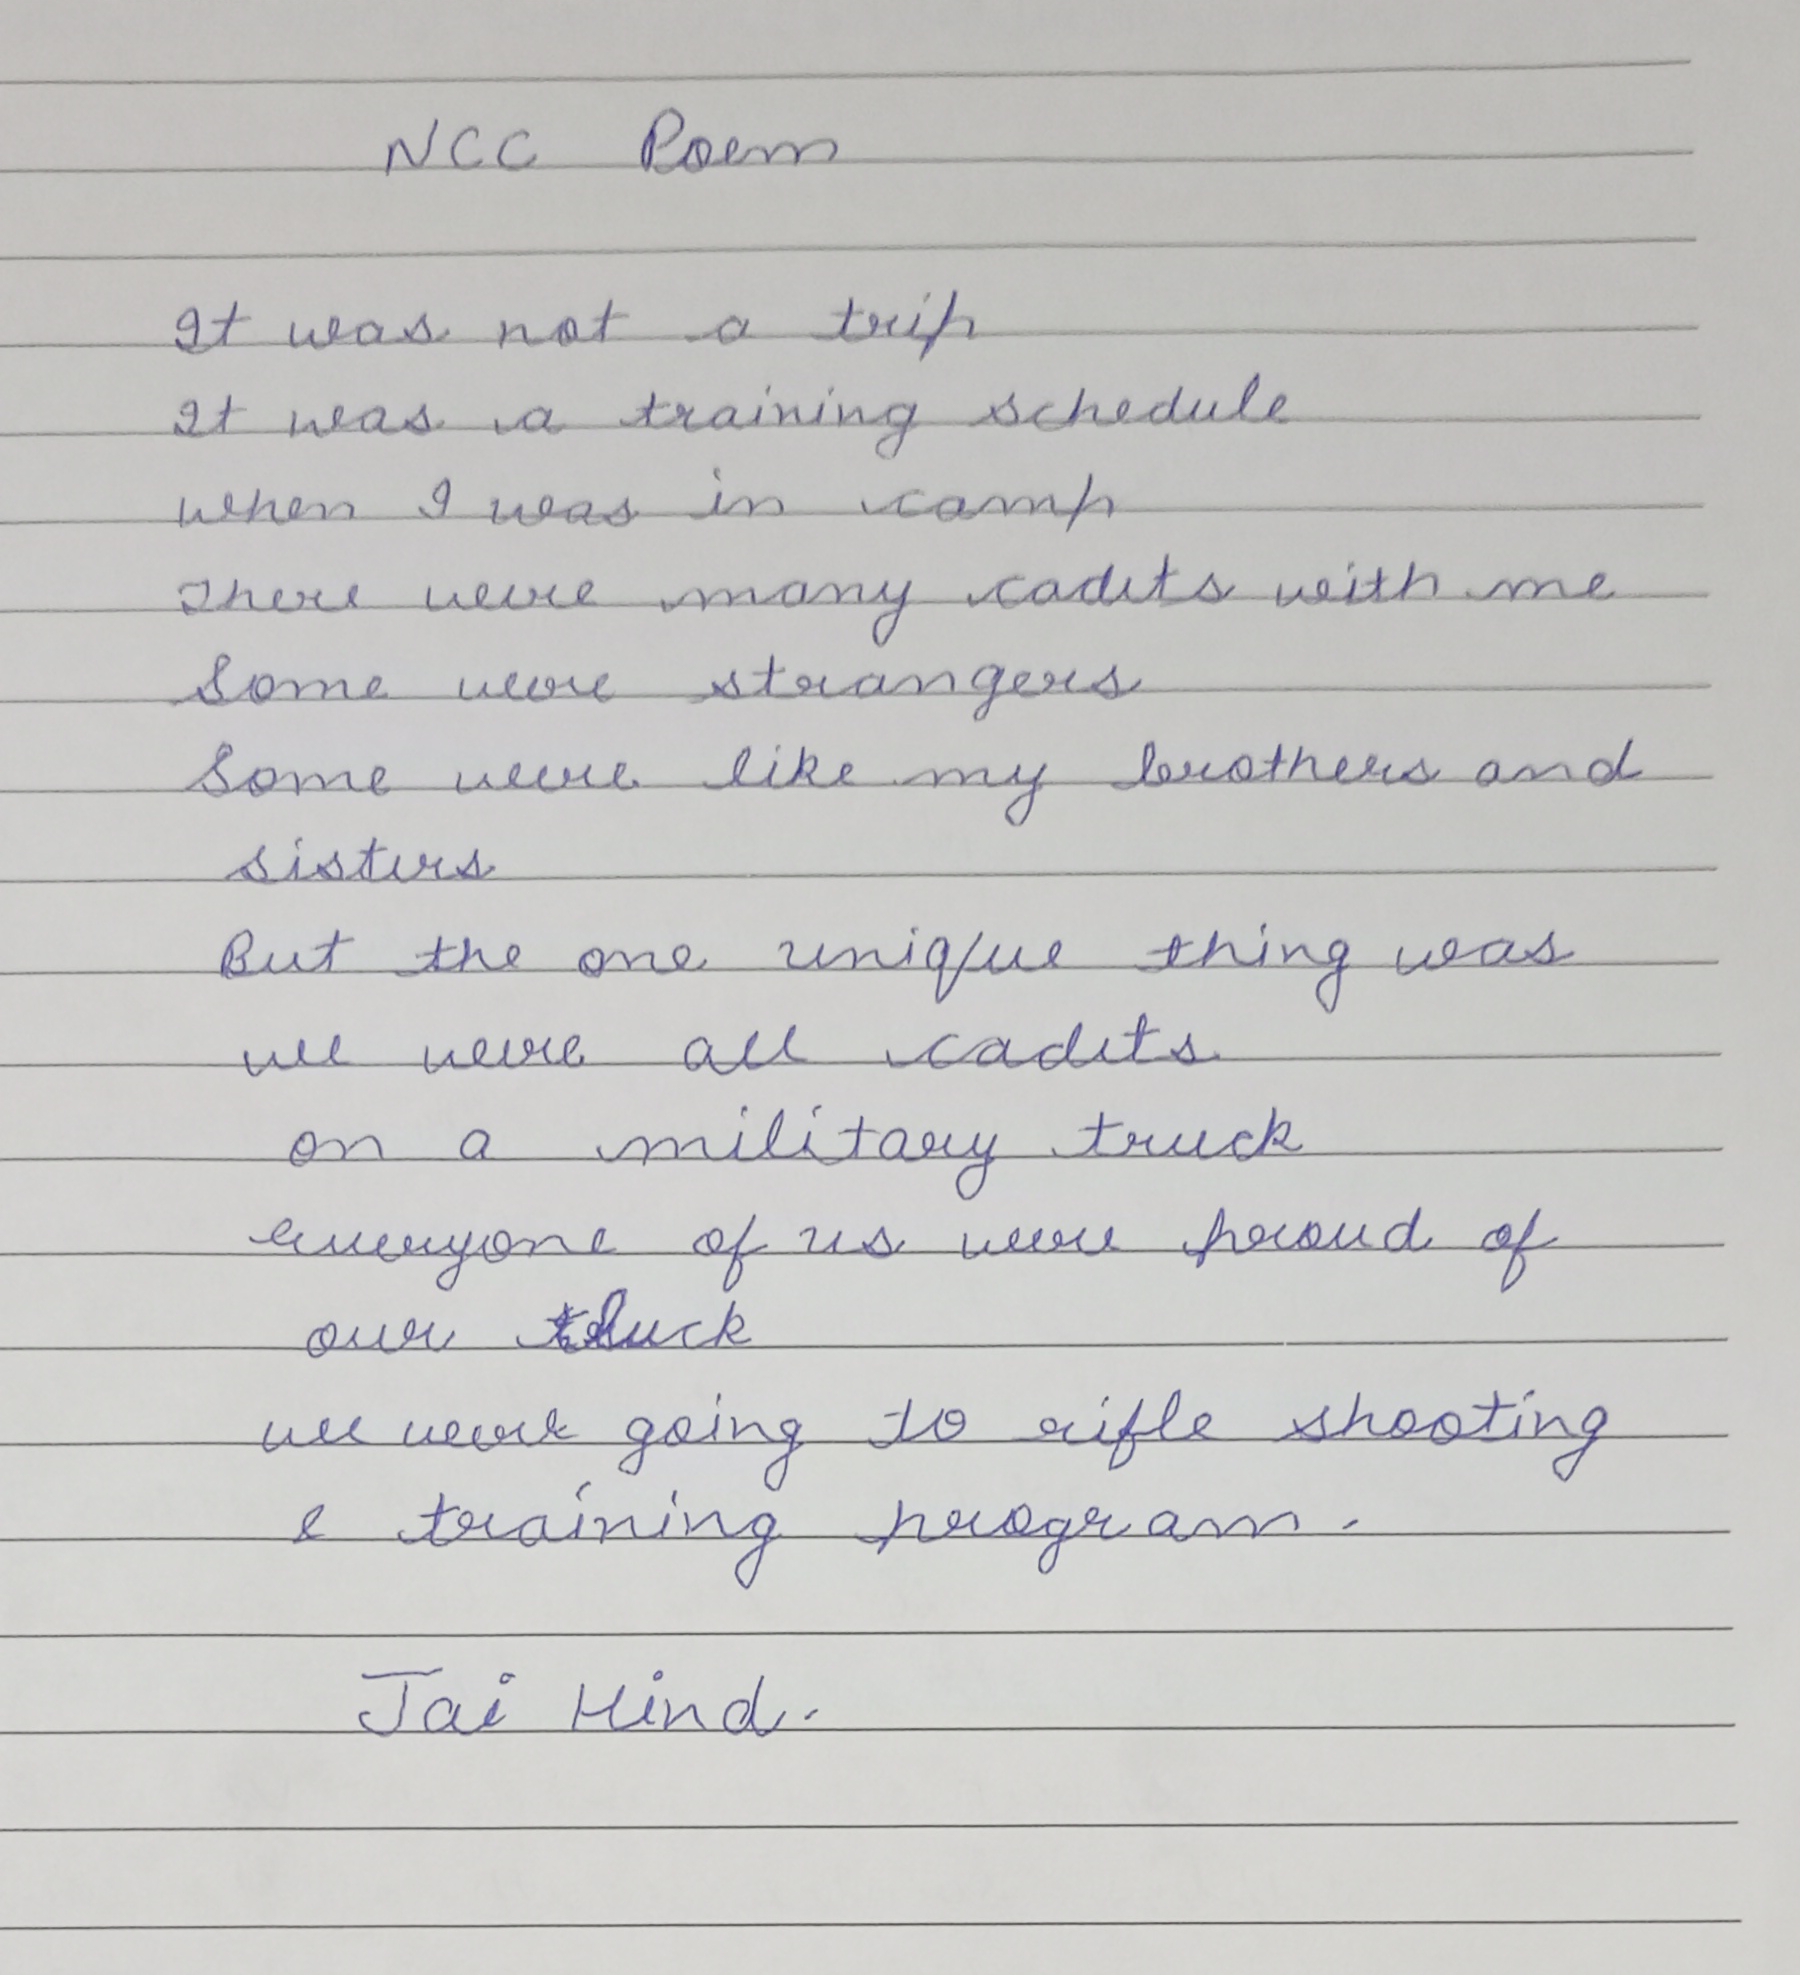 NCC Poem
It was not a trip
It was a training schedule
when I was in camp
There were many cadets with me
Some were strangers
Some were like my brothers and
sisters
But the one unique thing was
we were all cadets
on a military truck
everyone of us were proud of
our luck
we were going to rifle shooting
& training program.
Jai Hind.